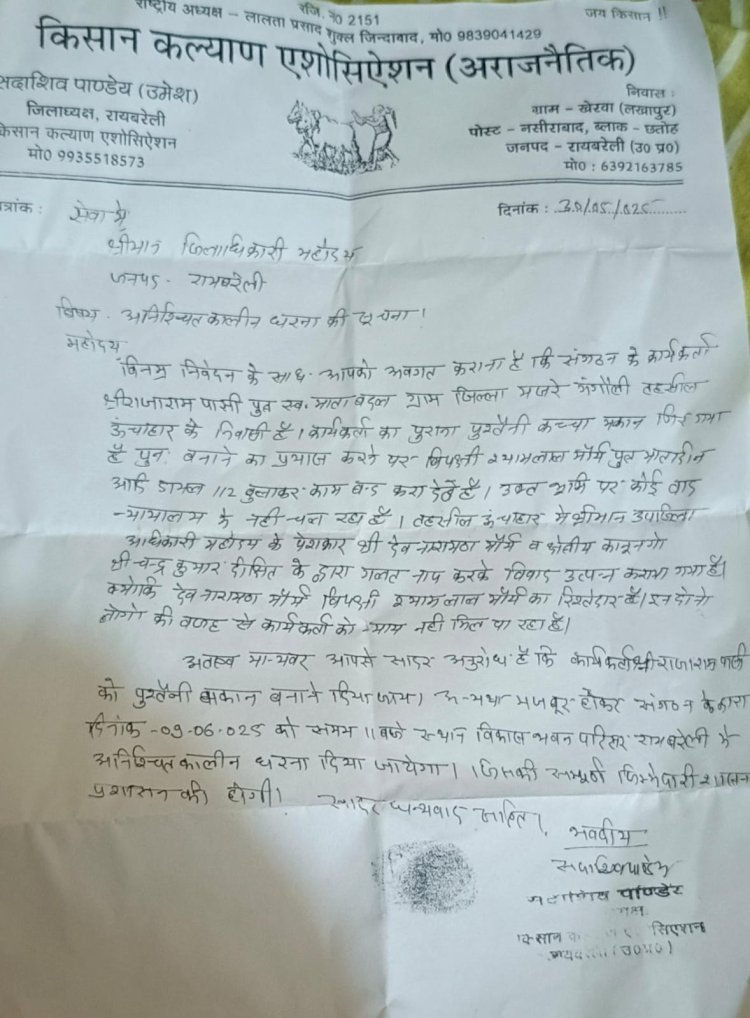 राष्ट्रीय अध्यक्ष – लालता प्रसाद शुक्ल जिन्दाबाद, मो0 9839041429
रजि. नं0 2151
जय किसान !!
किसान कल्याण एशोसिऐशन (अराजनैतिक)
सदाशिव पाण्डेय (उमेश)
जिलाध्यक्ष, रायबरेली
किसान कल्याण एशोसिऐशन
मो0 9935518573
निवास :
ग्राम – खेरवा (लखापुर)
पोस्ट – नसीराबाद, ब्लाक – छतोह
जनपद – रायबरेली (उ0 प्र0)
मो0 : 6392163785
पत्रांक :
दिनांक : 30/05/025
सेवा में
श्रीमान जिलाधिकारी महोदय
जनपद - रायबरेली
विषय - अनिश्चित कालीन धरना की सूचना।
महोदय
विनम्र निवेदन के साथ आपको अवगत कराना है कि संगठन के कार्यकर्ता
श्री राजाराम पासी पुत्र स्व. माता बदल ग्राम जिल्ला मजरे गंगौली तहसील
ऊंचाहार के निवासी है। कार्यकर्ता का पुराना पुश्तैनी कच्चा मकान गिर गया
है पुनः बनाने का प्रयास करने पर विपक्षी श्यामलाल मौर्य पुत्र मातादीन
आदि डायल 112 बुलाकर काम बन्द करा देते है। उक्त भूमि पर कोई वाद
न्यायालय मे नही चल रहा है। तहसील ऊंचाहार मे श्रीमान उपजिला
अधिकारी महोदय के पेशकार श्री देव नारायण मौर्य व क्षेत्रीय कानूनगो
श्री चन्द्र कुमार दीक्षित के द्वारा गलत नाप करके विवाद उत्पन्न कराया गया है।
क्योकि देव नारायण मौर्य विपक्षी श्याम लाल मौर्य का रिश्तेदार है। इन दोनो
लोगो की वजह से कार्यकर्ता को न्याय नही मिल पा रहा है।
अतएव मान्यवर आपसे सादर अनुरोध है कि कार्यकर्ता श्री राजाराम पासी
को पुश्तैनी मकान बनाने दिया जाय। अन्यथा मजबूर होकर संगठन के द्वारा
दिनांक - 09-06-025 को समय 11 बजे स्थान विकास भवन परिसर रायबरेली मे
अनिश्चित कालीन धरना दिया जायेगा। जिसकी सम्पूर्ण जिम्मेदारी शासन
प्रशासन की होगी। सादर धन्यवाद सहित।
भवदीय
सदाशिव पाण्डेय
सदाशिव पाण्डेय
(उ0प्र0)